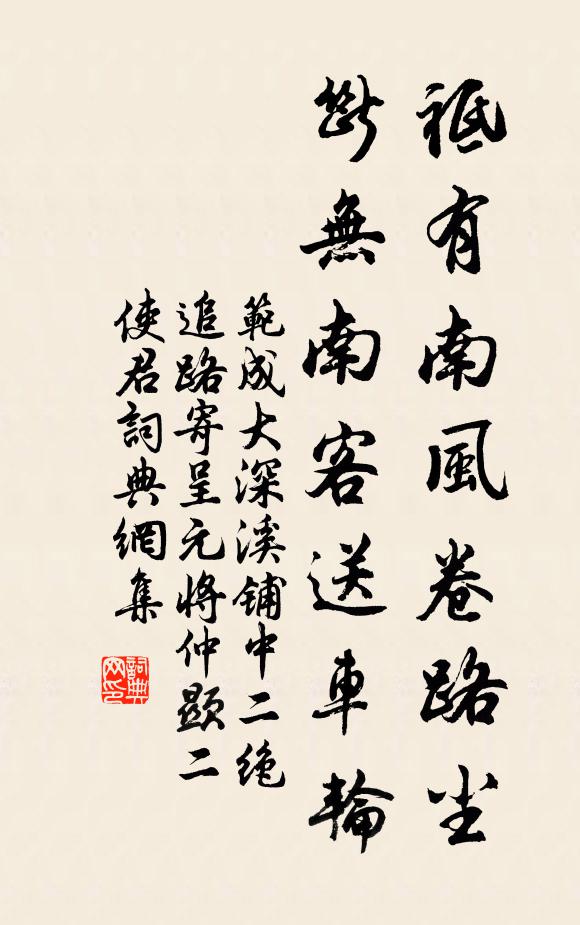 祗有南風卷路尘
斷無南客送車輪
範成大深溪鋪中二絶
追路寄呈元將仲顯二
使君詞典網集
詞典
网印